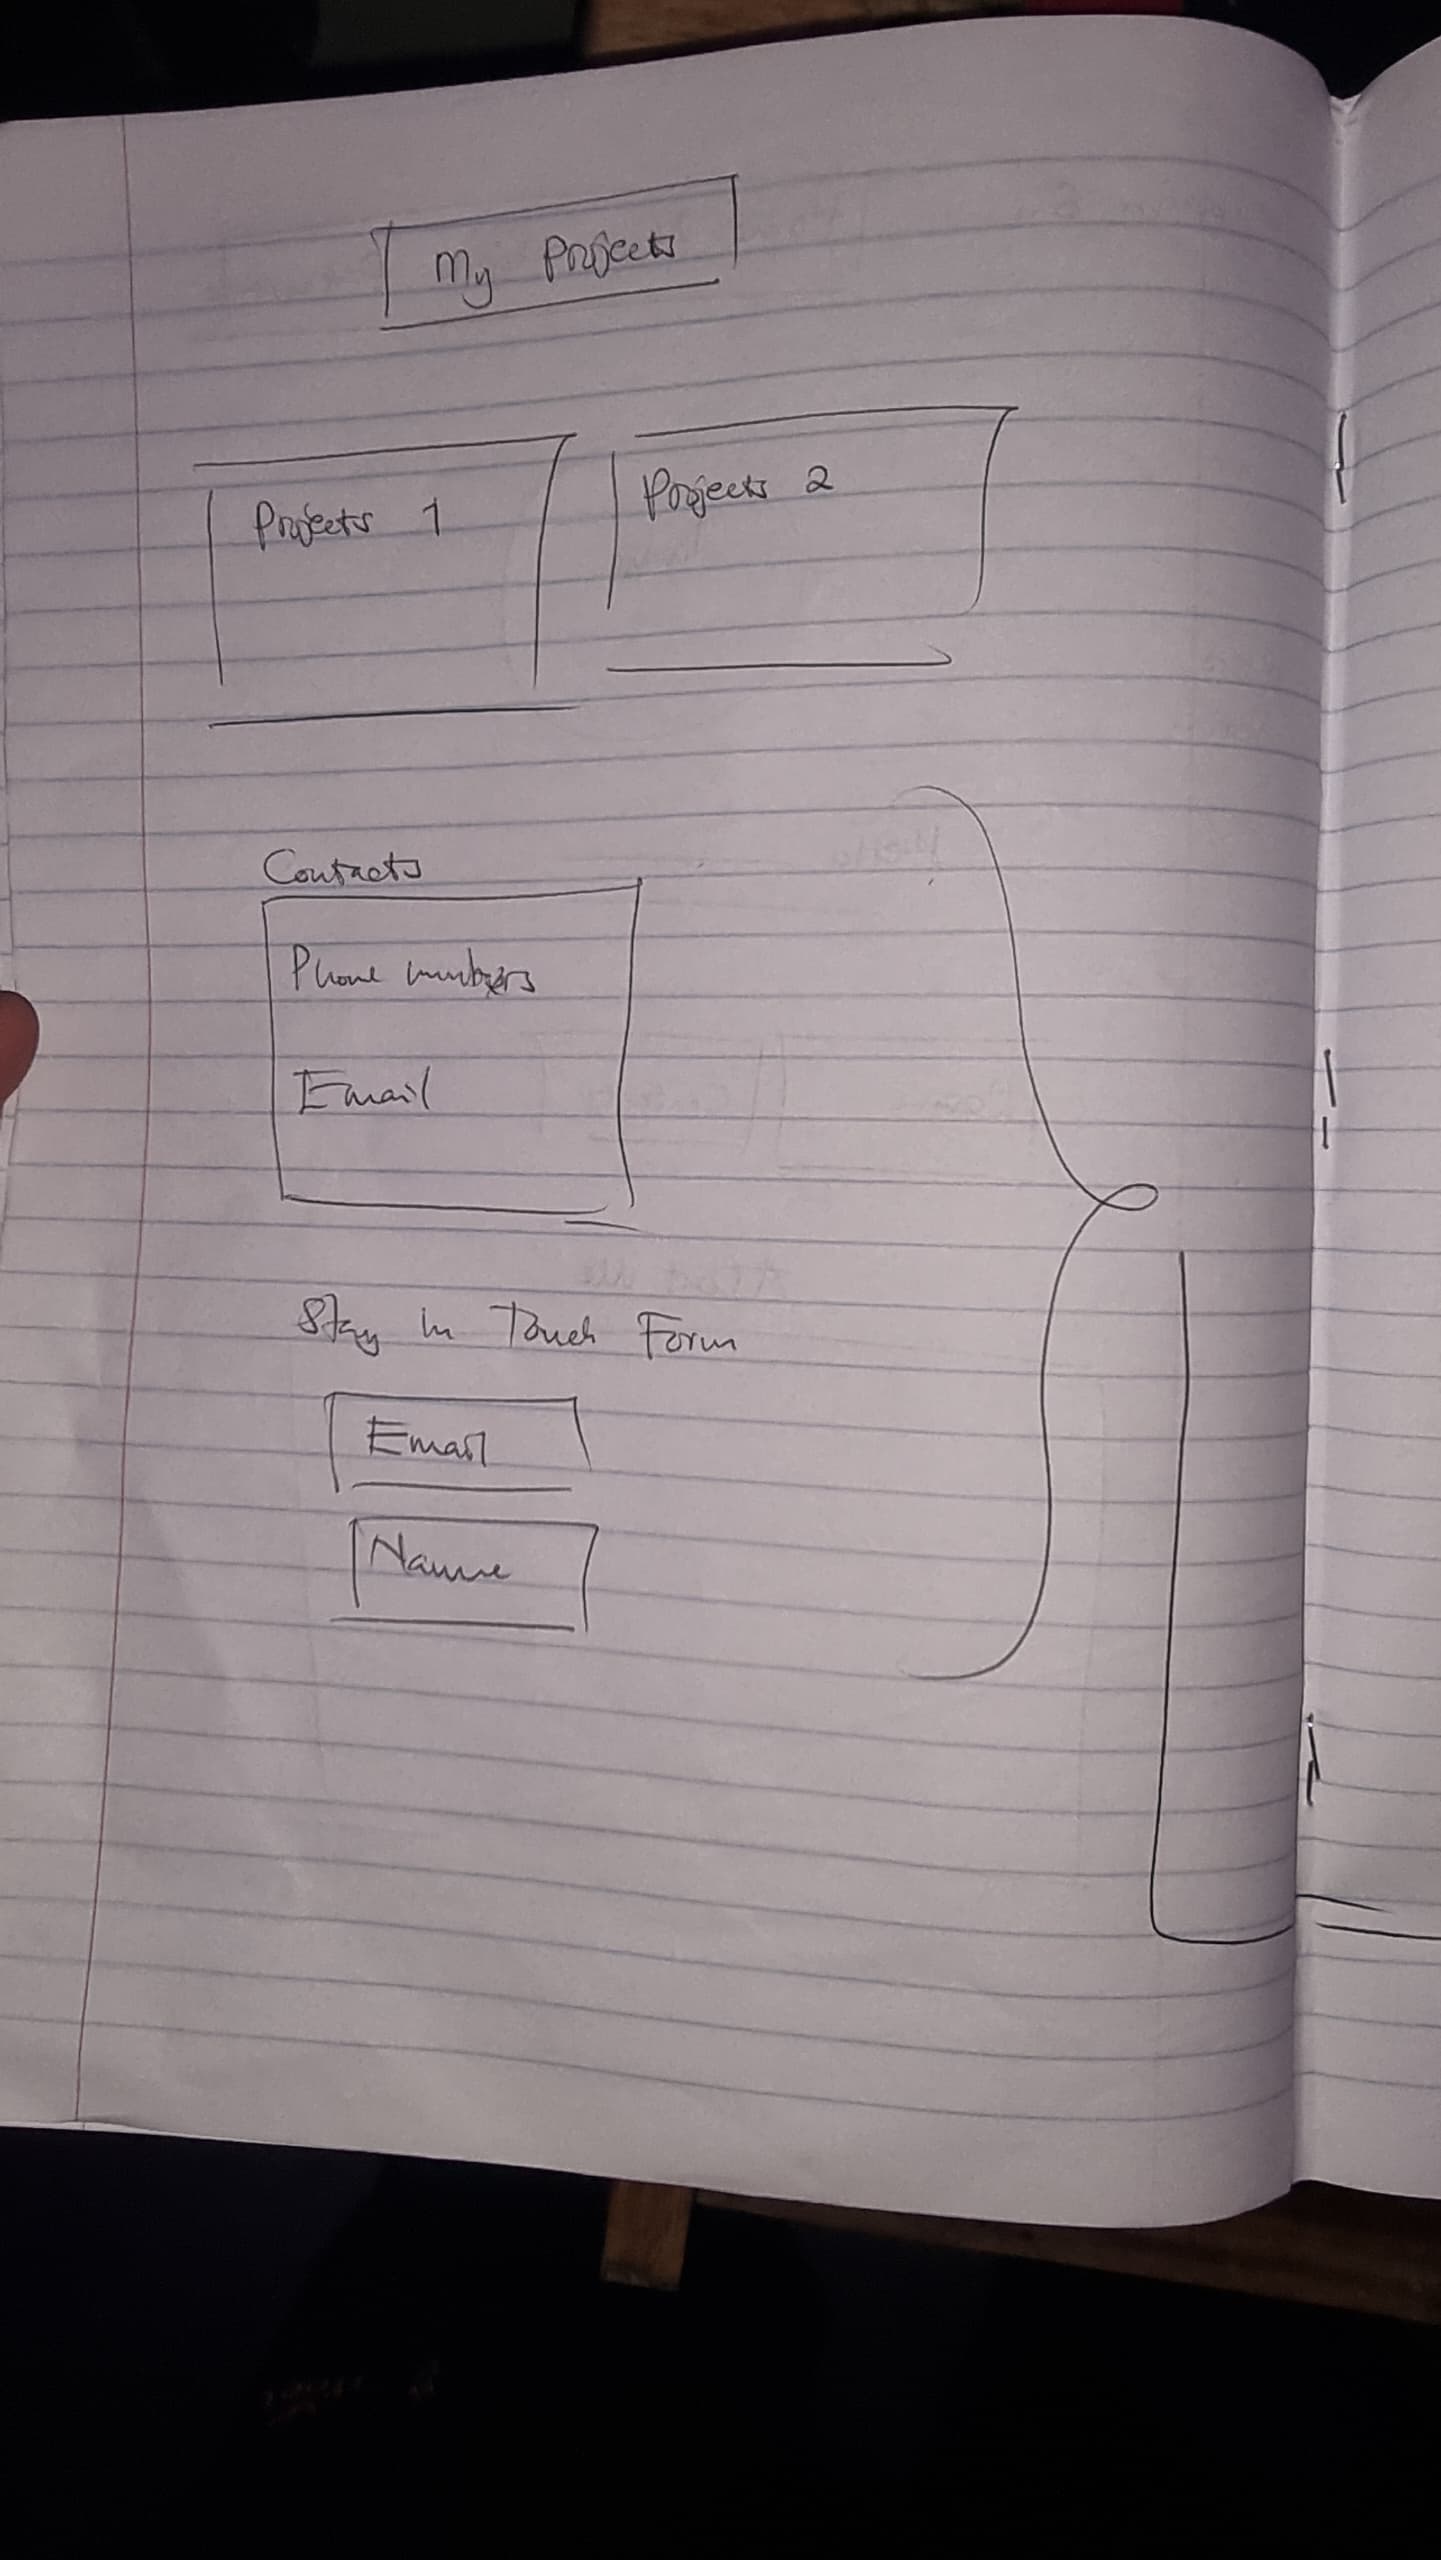 My Projects
Projects 1
Projects 2
Contacts
Phone numbers
Email
Stay in Touch Form
Email
Name